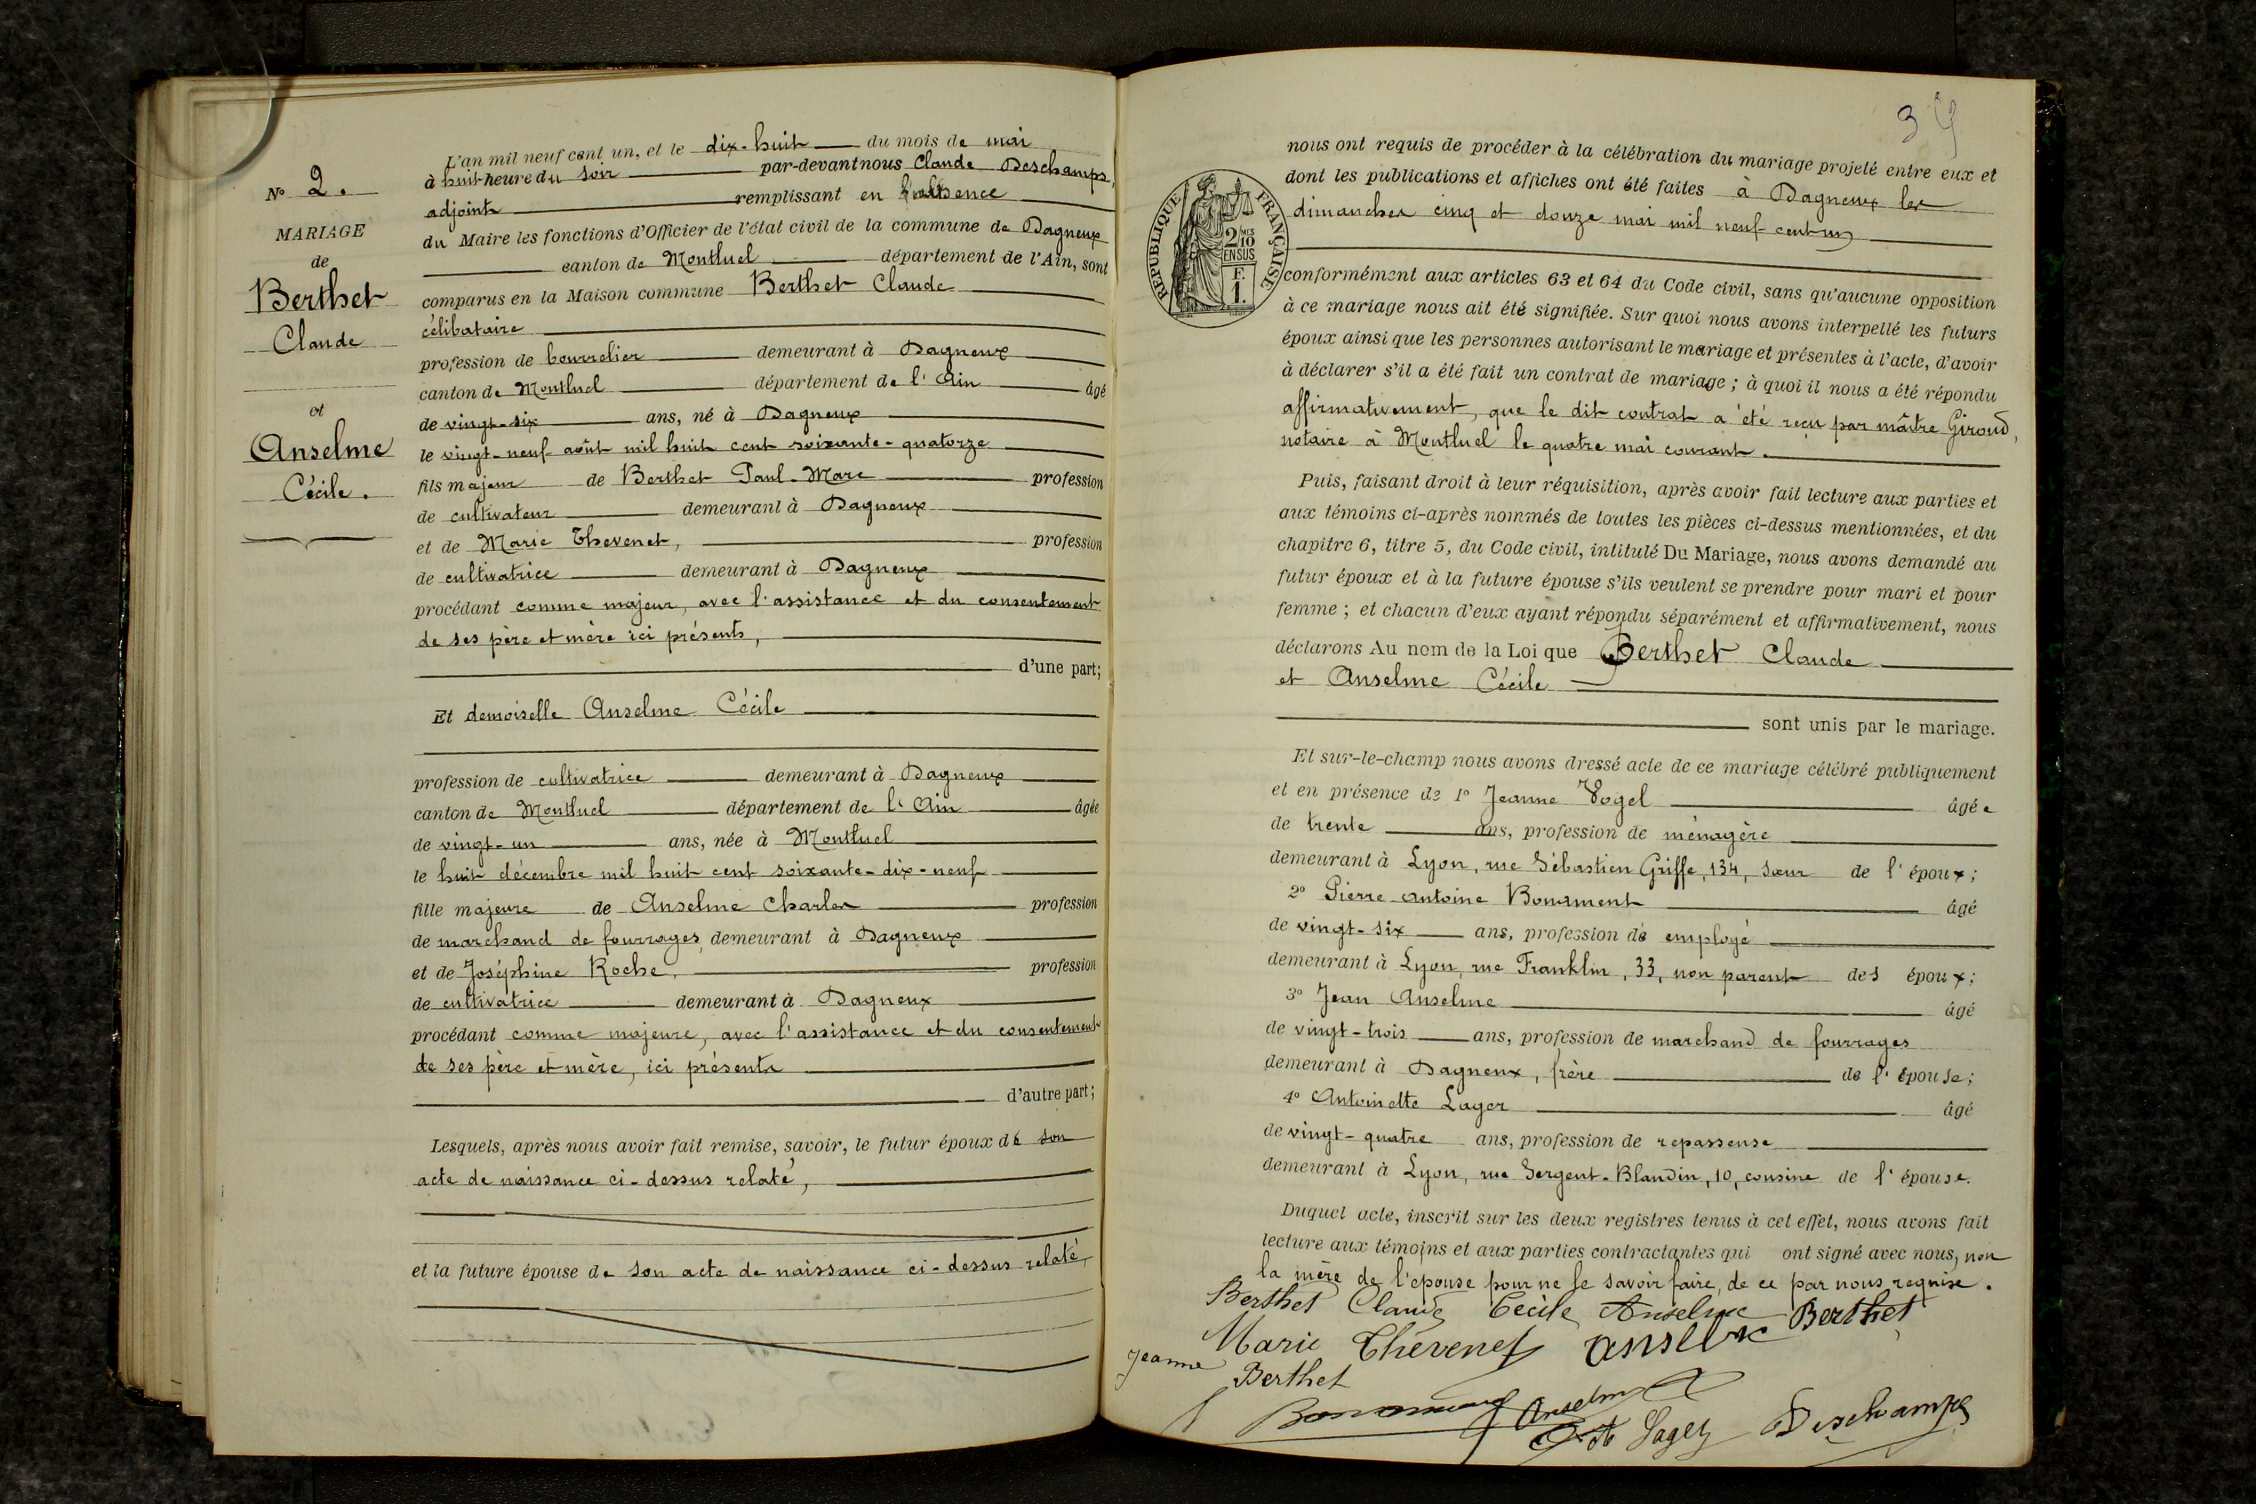 L'an mil neuf cent un, et le dix-huit du mois de mai
à huit heure du soir par-devant nous Claude Deschamps,
adjoint remplissant en l'absence
du Maire les fonctions d'Officier de l'état civil de la commune de Dagneux
canton de Montluel département de l'Ain, sont
comparus en la Maison commune Berthet Claude
célibataire
profession de bourrelier demeurant à Dagneux
canton de Montluel département de l'Ain âgé
de vingt-six ans, né à Dagneux
le vingt-neuf août mil huit cent soixante-quatorze
fils majeur de Berthet Paul-Marc profession
de cultivateur demeurant à Dagneux
et de Marie Thevenet, profession
de cultivatrice demeurant à Dagneux
procédant comme majeur, avec l'assistance et du consentement
de ses père et mère ici présents,
d'une part;
Et demoiselle Anselme Cécile
profession de cultivatrice demeurant à Dagneux
canton de Montluel département de l'Ain âgée
de vingt-un ans, née à Montluel
le huit décembre mil huit cent soixante-dix-neuf
fille majeure de Anselme Charles profession
de marchand de fourrages, demeurant à Dagneux
et de Joséphine Roche, profession
de cultivatrice demeurant à Dagneux
procédant comme majeure, avec l'assistance et du consentement
de ses père et mère, ici présents
d'autre part;
Lesquels, après nous avoir fait remise, savoir, le futur époux de son
acte de naissance ci-dessus relaté,
et la future épouse de son acte de naissance ci-dessus relaté,
No 2.
MARIAGE
de
Berthet
Claude
et
Anselme
Cécile.
RÉPUBLIQUE FRANÇAISE
2/10 MES
EN SUS
F.
1.
nous ont requis de procéder à la célébration du mariage projeté entre eux et
dont les publications et affiches ont été faites à Dagneux les
dimanches cinq et douze mai mil neuf cent un
conformément aux articles 63 et 64 du Code civil, sans qu'aucune opposition
à ce mariage nous ait été signifiée. Sur quoi nous avons interpellé les futurs
époux ainsi que les personnes autorisant le mariage et présentes à l'acte, d'avoir
à déclarer s'il a été fait un contrat de mariage; à quoi il nous a été répondu
affirmativement, que le dit contrat a été reçu par maître Giroud,
notaire à Montluel le quatre mai courant.
Puis, faisant droit à leur réquisition, après avoir fait lecture aux parties et
aux témoins ci-après nommés de toutes les pièces ci-dessus mentionnées, et du
chapitre 6, titre 5, du Code civil, intitulé Du Mariage, nous avons demandé au
futur époux et à la future épouse s'ils veulent se prendre pour mari et pour
femme; et chacun d'eux ayant répondu séparément et affirmativement, nous
déclarons Au nom de la Loi que Berthet Claude
et Anselme Cécile
sont unis par le mariage.
Et sur-le-champ nous avons dressé acte de ce mariage célébré publiquement
et en présence de 1º Jeanne Vogel âgée
de trente ans, profession de ménagère
demeurant à Lyon, rue Sébastien Griffe, 134, sœur de l'époux;
2º Pierre Antoine Bonament âgé
de vingt-six ans, profession de employé
demeurant à Lyon, rue Franklin, 33, non parent des époux;
3º Jean Anselme âgé
de vingt-trois ans, profession de marchand de fourrages
demeurant à Dagneux, frère de l'épouse;
4º Antoinette Lager âgé
de vingt-quatre ans, profession de repasseuse
demeurant à Lyon, rue Sergent-Blandin, 10, cousine de l'épouse.
Duquel acte, inscrit sur les deux registres tenus à cet effet, nous avons fait
lecture aux témoins et aux parties contractantes qui ont signé avec nous, non
la mère de l'épouse pour ne le savoir faire, de ce par nous requise.
Berthet Claude Cécile Anselme Berthet
Marie Thévenet Anselme
Jeanne Berthet
Anselme
Lager Deschamps